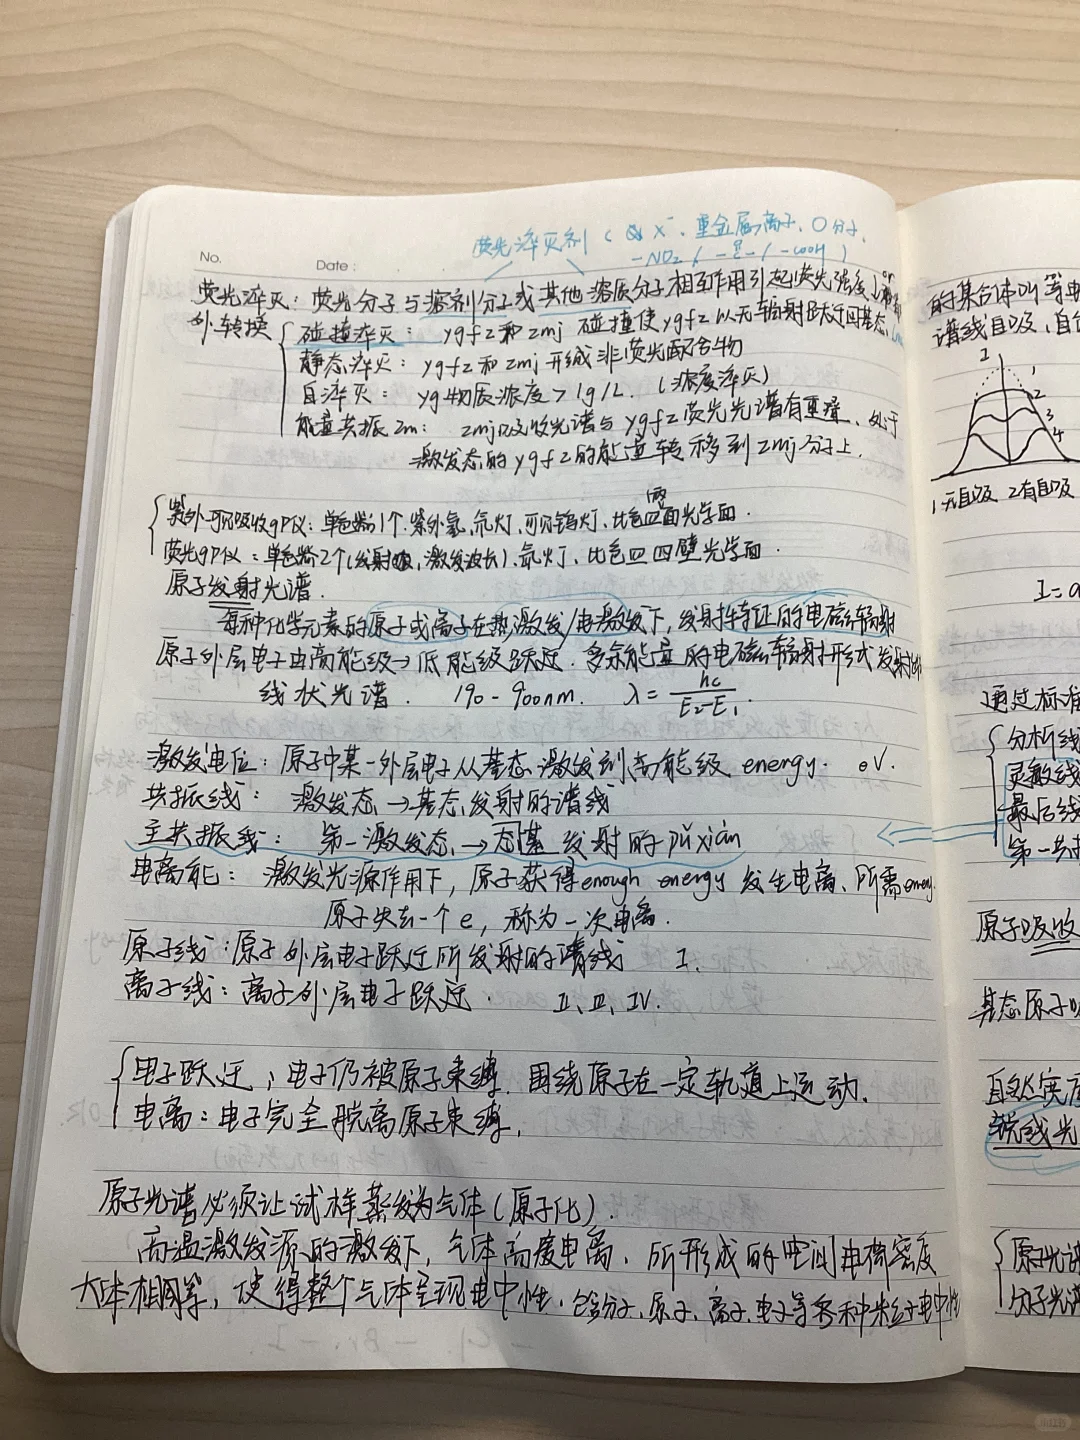 荧光淬灭剂 ( X⁻、重金属离子、O分子、
-NO₂ / / -COOH )
No. Date:
荧光淬灭：荧光分子与溶剂分子或其他溶质分子相互作用引起荧光强度↓
外转换
碰撞淬灭：ygfz和zmj 碰撞使ygfz以无辐射跃迁回基态.
静态淬灭：ygfz和zmj形成非荧光配合物
自淬灭：yg物质浓度>1g/L. (浓度淬灭)
能量共振zm：zmj吸收光谱与ygfz荧光光谱有重叠、处于
激发态的ygfz的能量转移到zmj分子上.
紫外-可见吸收gP仪：单色器1个.紫外氢、氘灯、可见钨灯、比色皿两面光学面.
荧光gP仪：单色器2个(发射, 激发波长).氙灯、比色皿四壁光学面.
原子发射光谱.
每种化学元素的原子或离子在热激发/电激发下，发射特征的电磁辐射
原子外层电子由高能级→低能级跃迁.多余能量的电磁辐射形式发射
线状光谱. 190-900nm. λ=hc/E₂-E₁.
激发电位：原子中某一外层电子从基态激发到高能级energy. eV.
共振线：激发态→基态发射的谱线
主共振线：第一激发态→态基发射的pǔxiàn
电离能：激发光源作用下，原子获得enough energy发生电离、所需energy.
原子失去一个e，称为一次电离.
原子线：原子外层电子跃迁所发射的谱线 I.
离子线：离子外层电子跃迁. II、III、IV.
电子跃迁；电子仍被原子束缚.围绕原子在一定轨道上运动.
电离：电子完全脱离原子束缚.
原子光谱必须让试样蒸发为气体(原子化).
高温激发源的激发下，气体高度电离.所形成的空间电荷密度
大体相等，使得整个气体呈现电中性.包含分子.原子.离子.电子等各种粒子电中性
的集合体叫等
谱线自吸，自
I
1
2
3
4
1无自吸 2有自吸
I=a
通过标准
分析线
灵敏线
最后线
第一共
原子吸收
基态原子
自然宽度
锐线光
原子光谱
分子光谱
小红书